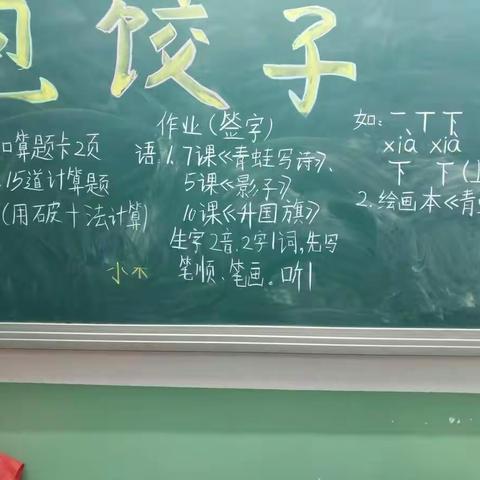 包饺子
口算题卡2项
15道计算题
(用破十法计算)
小不
作业(签字)
语:1.7课《青蛙写诗》、
5课《影子》
10课《升国旗》
生字2音、2字1词,先写
笔顺、笔画。听1
如:一丅下
xià xià
下 下(
2.绘画本《青